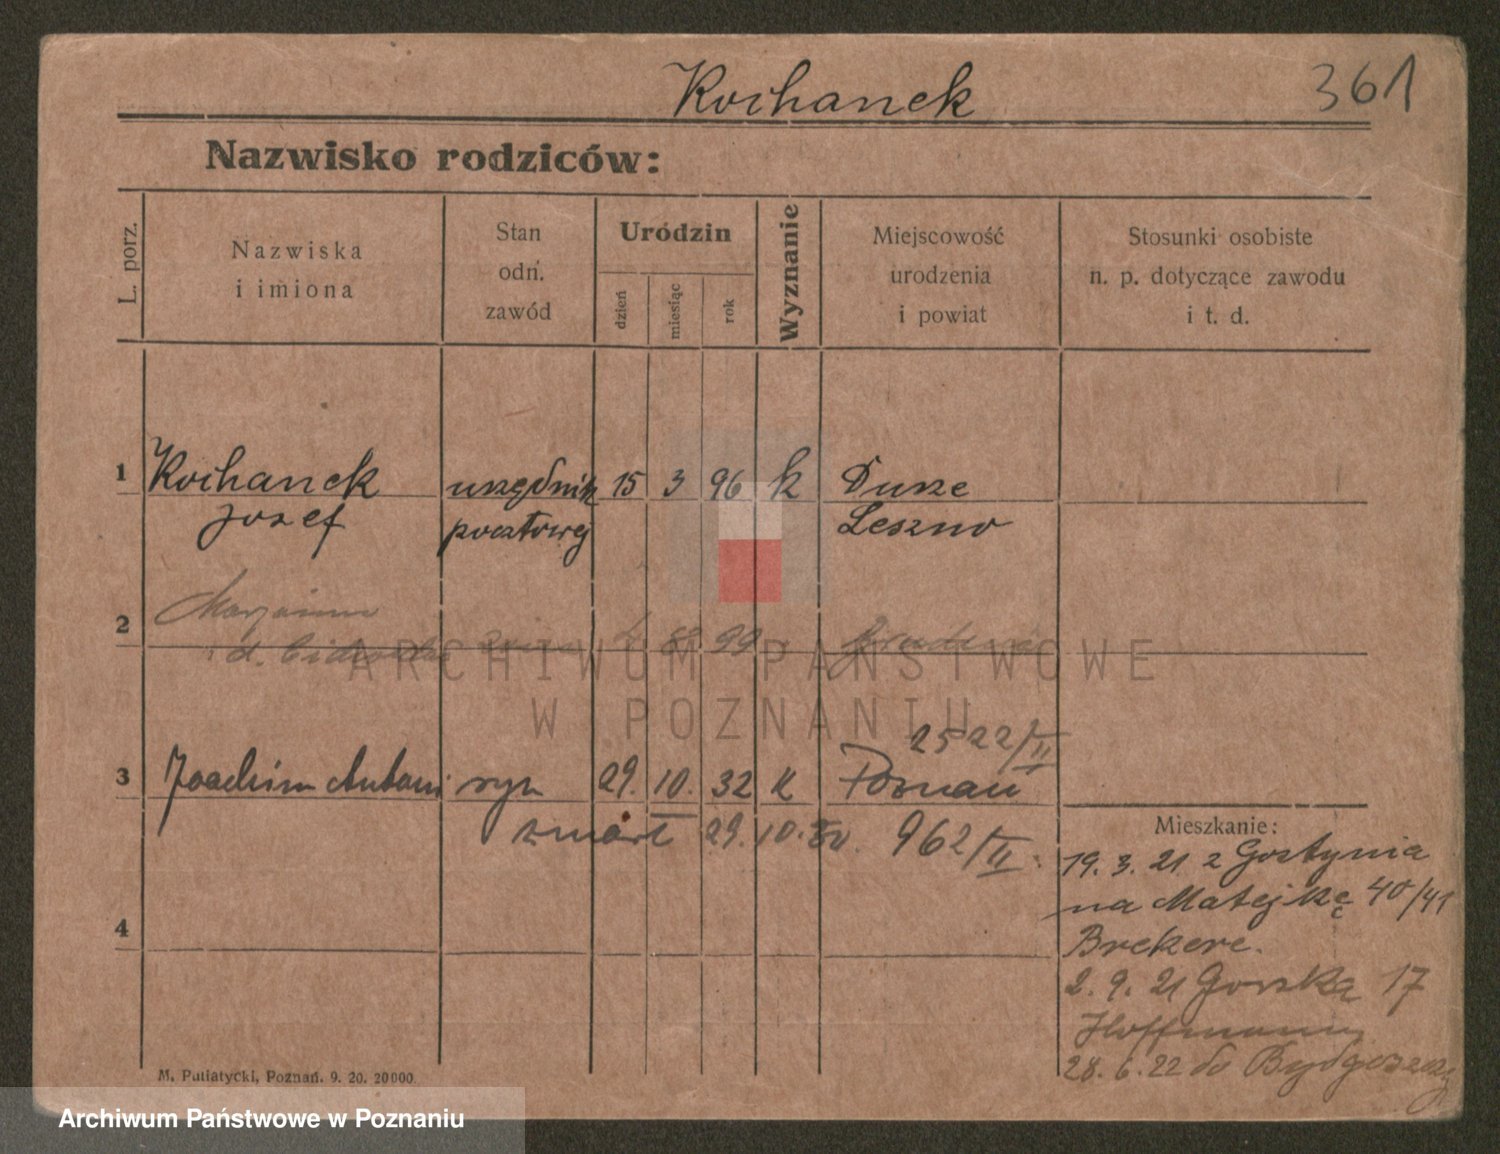 Kochanek
361
Nazwisko rodziców:
L. porz.
Nazwiska
i imiona
Stan
odn.
zawód
Uródzin
dzień
miesiąc
rok
Wyznanie
Miejscowość
urodzenia
i powiat
Stosunki osobiste
n. p. dotyczące zawodu
i t. d.
1 Kochanek urzędnik 15 3 96 k Dusze
Jozef pocztowy Leszno
2 Marjanna
d. 99
ARCHIWUM PAŃSTWOWE
W POZNANIU
2522/II
3 Joachim Antoni syn 29. 10. 32 K Poznań
zmarł 29. 10. 962/II
4
Mieszkanie:
19. 3. 21 z Gostynia
na Matejkę 40/41
Brekere.
2. 9. 21 Gorską 17
Hoffmann
28. 6. 22 do Bydgoszczy
M. Putiatycki, Poznań. 9. 20. 20000.
Archiwum Państwowe w Poznaniu